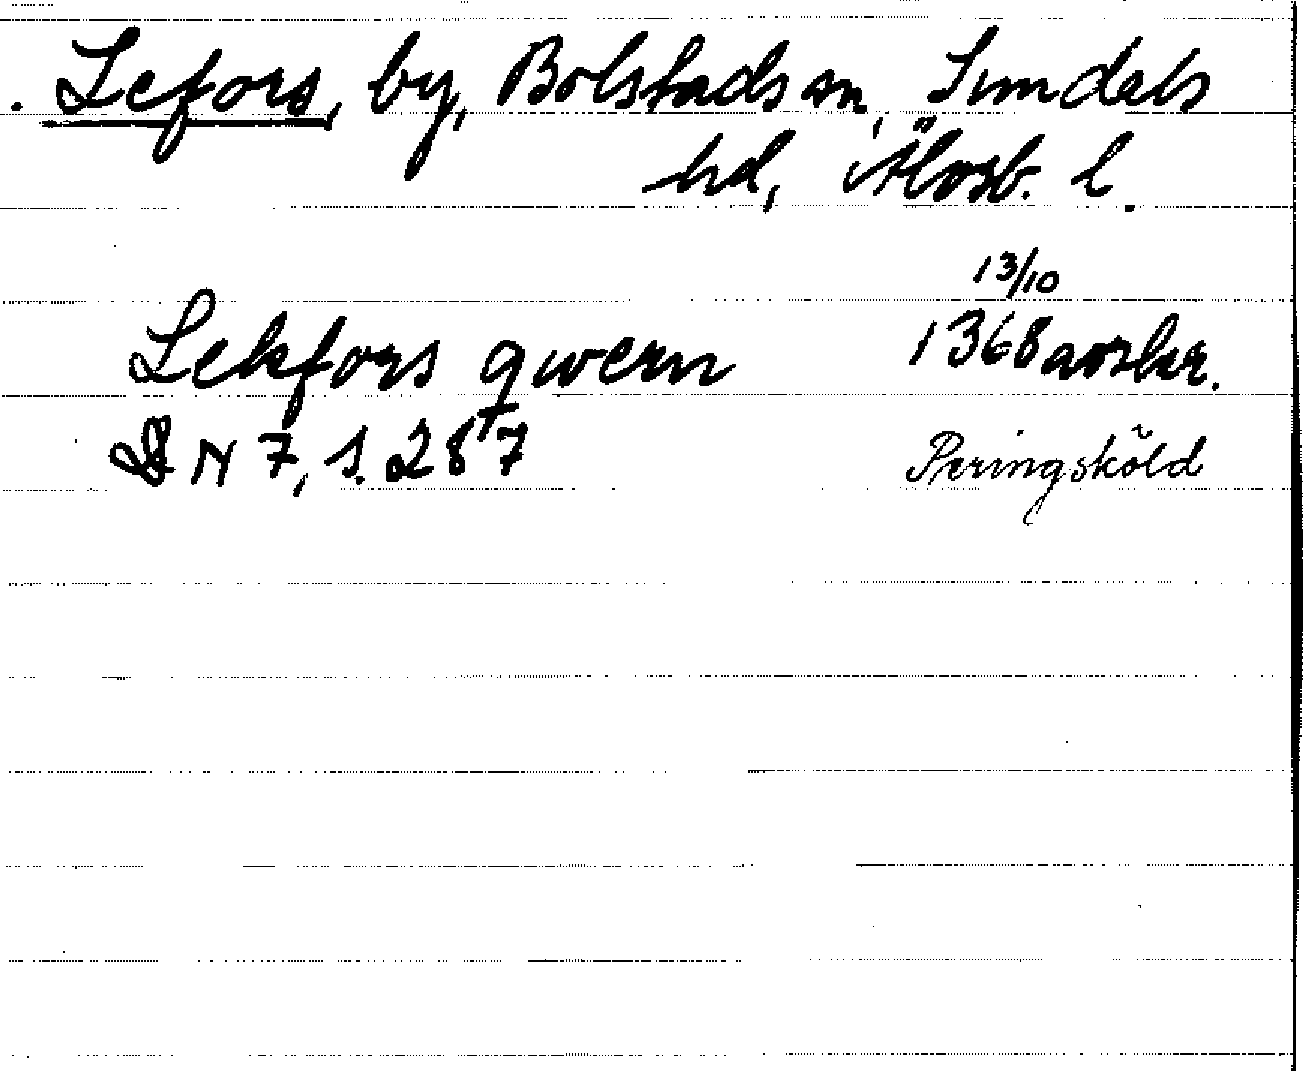 . Lefors, by, Bolstads sn, Sundals
hd, Älvsb. l.
13/10
Lekfors qwern 1368 avskr.
DN 7, s. 287 Peringsköld